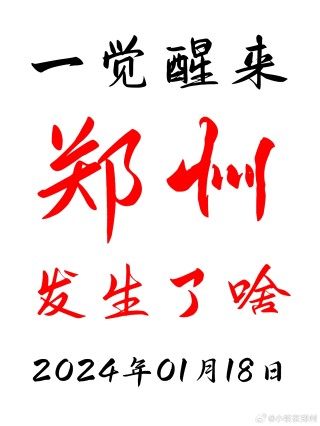 一觉醒来
郑州
发生了啥
2024年01月18日